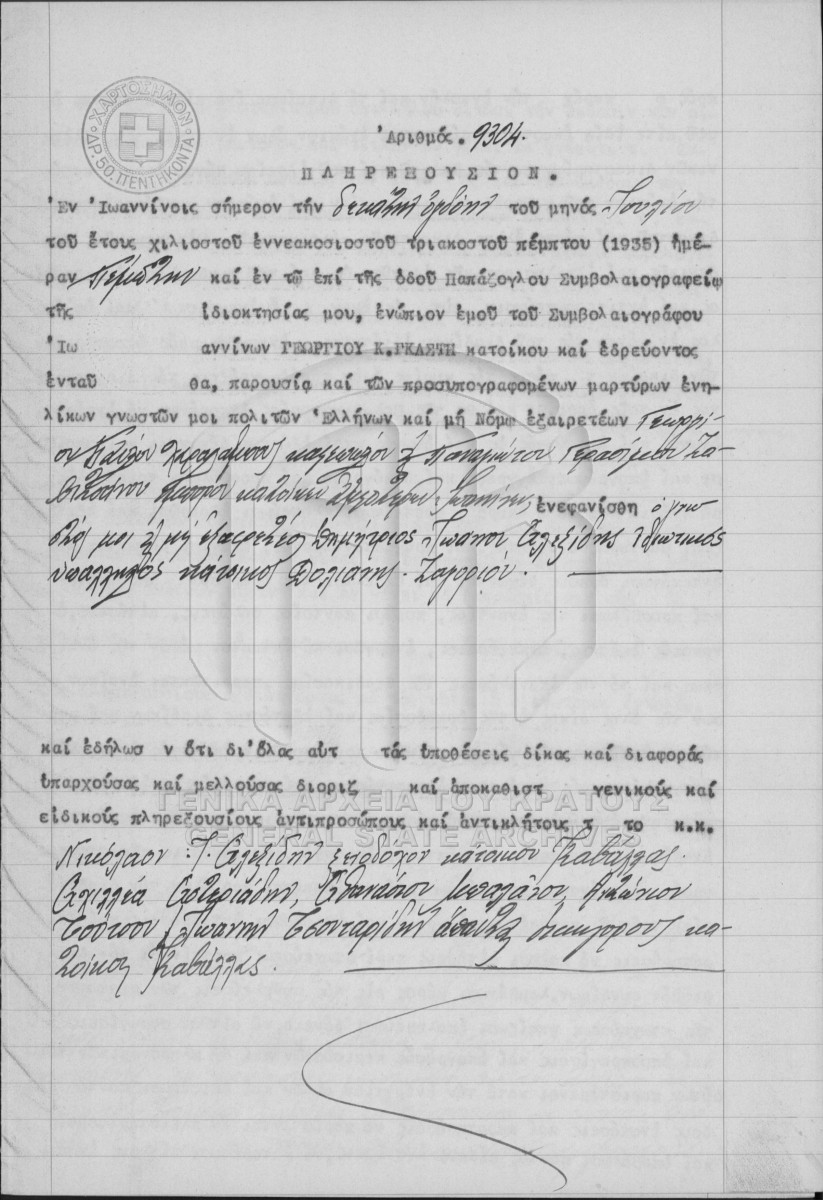 ΧΑΡΤΟΣΗΜΟΝ
ΔΡ. 50. ΠΕΝΤΗΚΟΝΤΑ
Ἀριθμός. 9304.
ΠΛΗΡΕΞΟΥΣΙΟΝ.
Ἐν Ἰωαννίνοις σήμερον τήν δεκάτην ὀγδόην τοῦ μηνός Ἰουλίου
τοῦ ἔτους χιλιοστοῦ ἐννεακοσιοστοῦ τριακοστοῦ πέμπτου (1935) ἡμέ-
ραν Πέμπτην καί ἐν τῷ ἐπί τῆς ὁδοῦ Παπάζογλου Συμβολαιογραφείῳ
τῆς ἰδιοκτησίας μου, ἐνώπιον ἐμοῦ τοῦ Συμβολαιογράφου
Ἰω αννίνων ΓΕΩΡΓΙΟΥ Κ. ΓΚΑΣΤΗ κατοίκου καί ἑδρεύοντος
ἐνταῦ θα, παρουσίᾳ καί τῶν προσυπογραφομένων μαρτύρων ἐνη-
λίκων γνωστῶν μοι πολιτῶν Ἑλλήνων καί μή Νόμῳ ἐξαιρετέων Γεωργί-
ου Χαραλάμπους Γερασίμου
κατοίκων ἐνεφανίσθη ὁ γνω
στός μοι καί μή ἐξαιρετέος Δημήτριος Ἰωάννου Ἀλεξίδης ἰδιωτικός
ὑπάλληλος κάτοικος Δολιανης Ζαγορίου.
καί ἐδήλωσ ν ὅτι δι'ὅλας αὐτ τάς ὑποθέσεις δίκας καί διαφοράς
ὑπαρχούσας καί μελλούσας διοριζ καί ἀποκαθιστ γενικούς καί
εἰδικούς πληρεξουσίους ἀντιπροσώπους καί ἀντικλήτους τ το κ.κ.
Νικόλαον Ἰ. Ἀλεξίδην ξενοδόχον κάτοικον Καβάλλας.
Ἀχιλλέα Ἀστεριάδην, Ἀθανάσιον Μπαλάνον, Ἀντώνιον
Ἰωάννην Τσονταρίδην ἅπαντας δικηγόρους κα-
τοίκους Καβάλλας.
ΓΕΝΙΚΑ ΑΡΧΕΙΑ ΤΟΥ ΚΡΑΤΟΥΣ
GENERAL STATE ARCHIVES